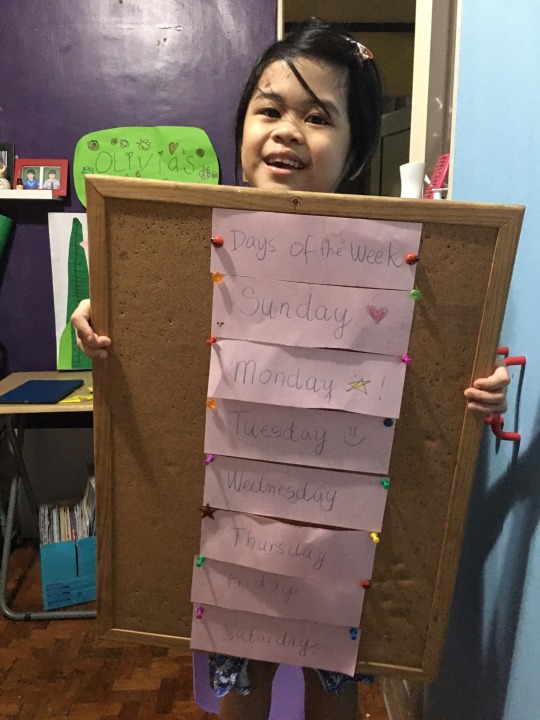 OLIVIA's
Days of the Week
Sunday
Monday !
Tuesday
Wednesday
Thursday
Friday
Saturday